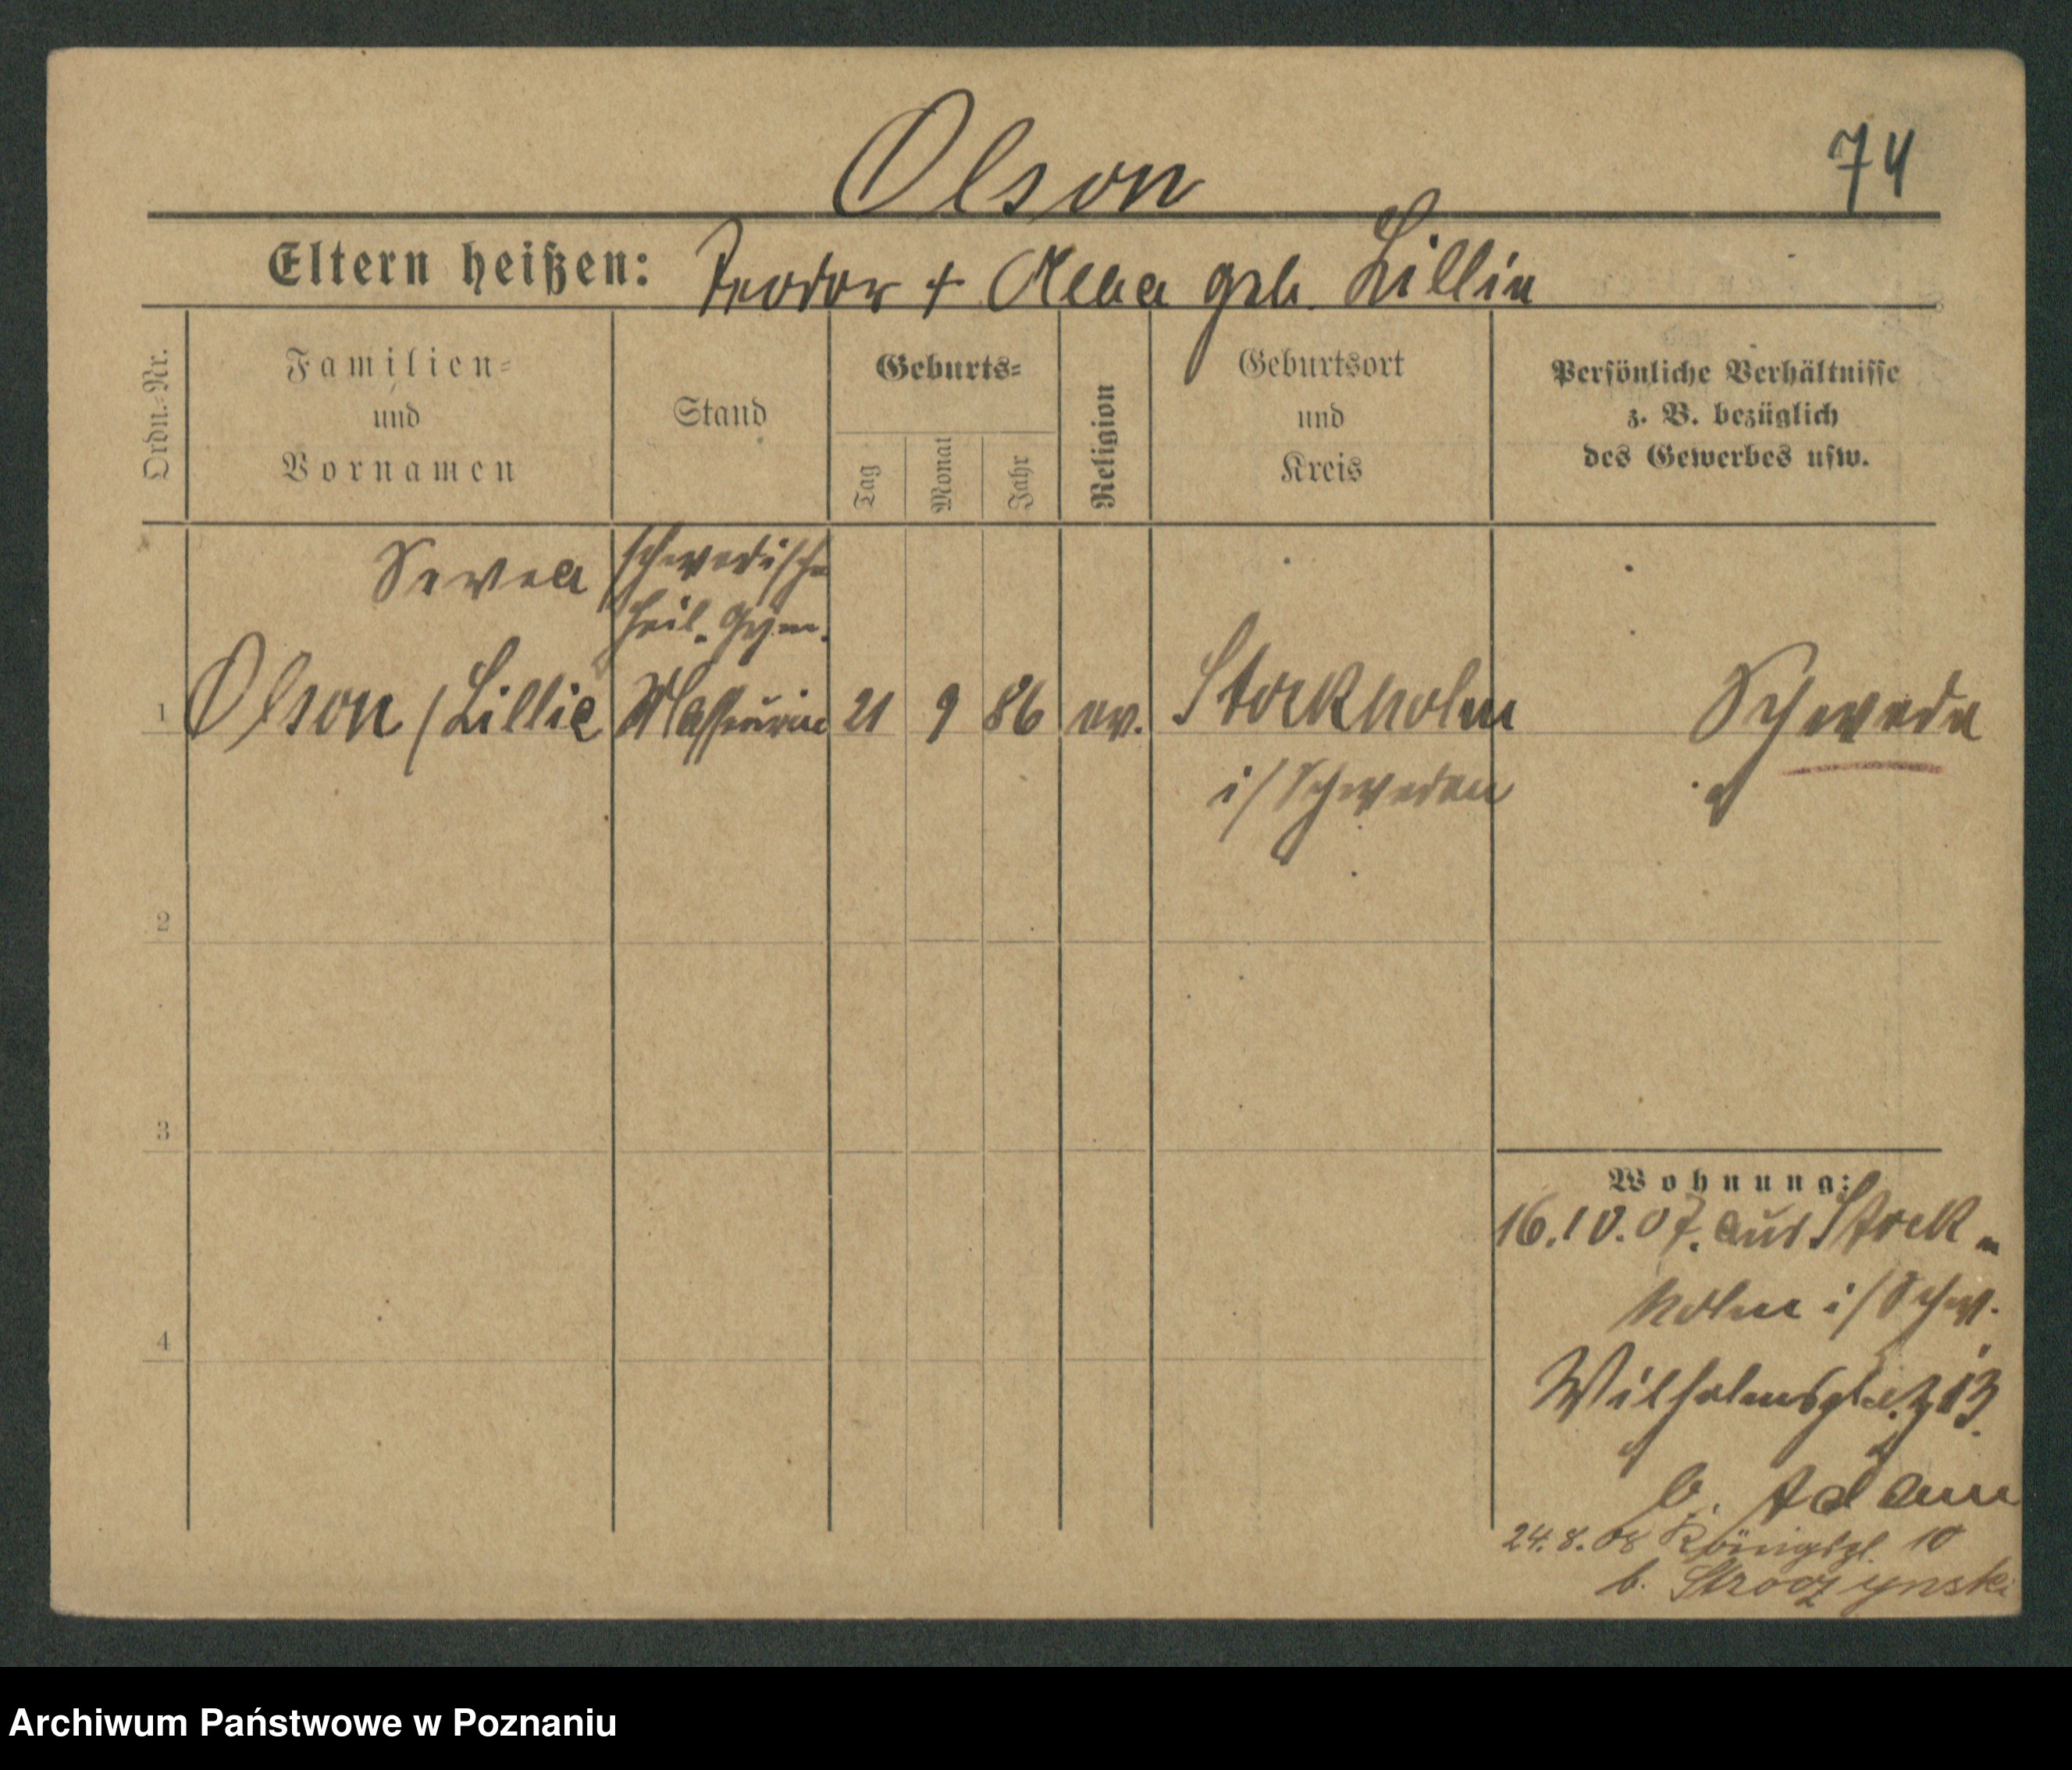 Olson
74
Eltern heißen: Teodor + Alma geb. Lillin
Ordn.-Nr.
Familien-
und
Vornamen
Stand
Geburts-
Tag
Monat
Jahr
Religion
Geburtsort
und
Kreis
Persönliche Verhältnisse
z. B. bezüglich
des Gewerbes usw.
schwedische
Heil. Gym.
1 Olson / Lillie Masseurin 21 9 86 ev. Stockholm Schwede
i/Schweden
2
3
4
Wohnung:
16.10.07. aus Stock-
holm i/Schw.
Wilhelmsplatz 13
b. Adam
24.8.08 Königspl. 10
b. Stroczynski
Archiwum Państwowe w Poznaniu